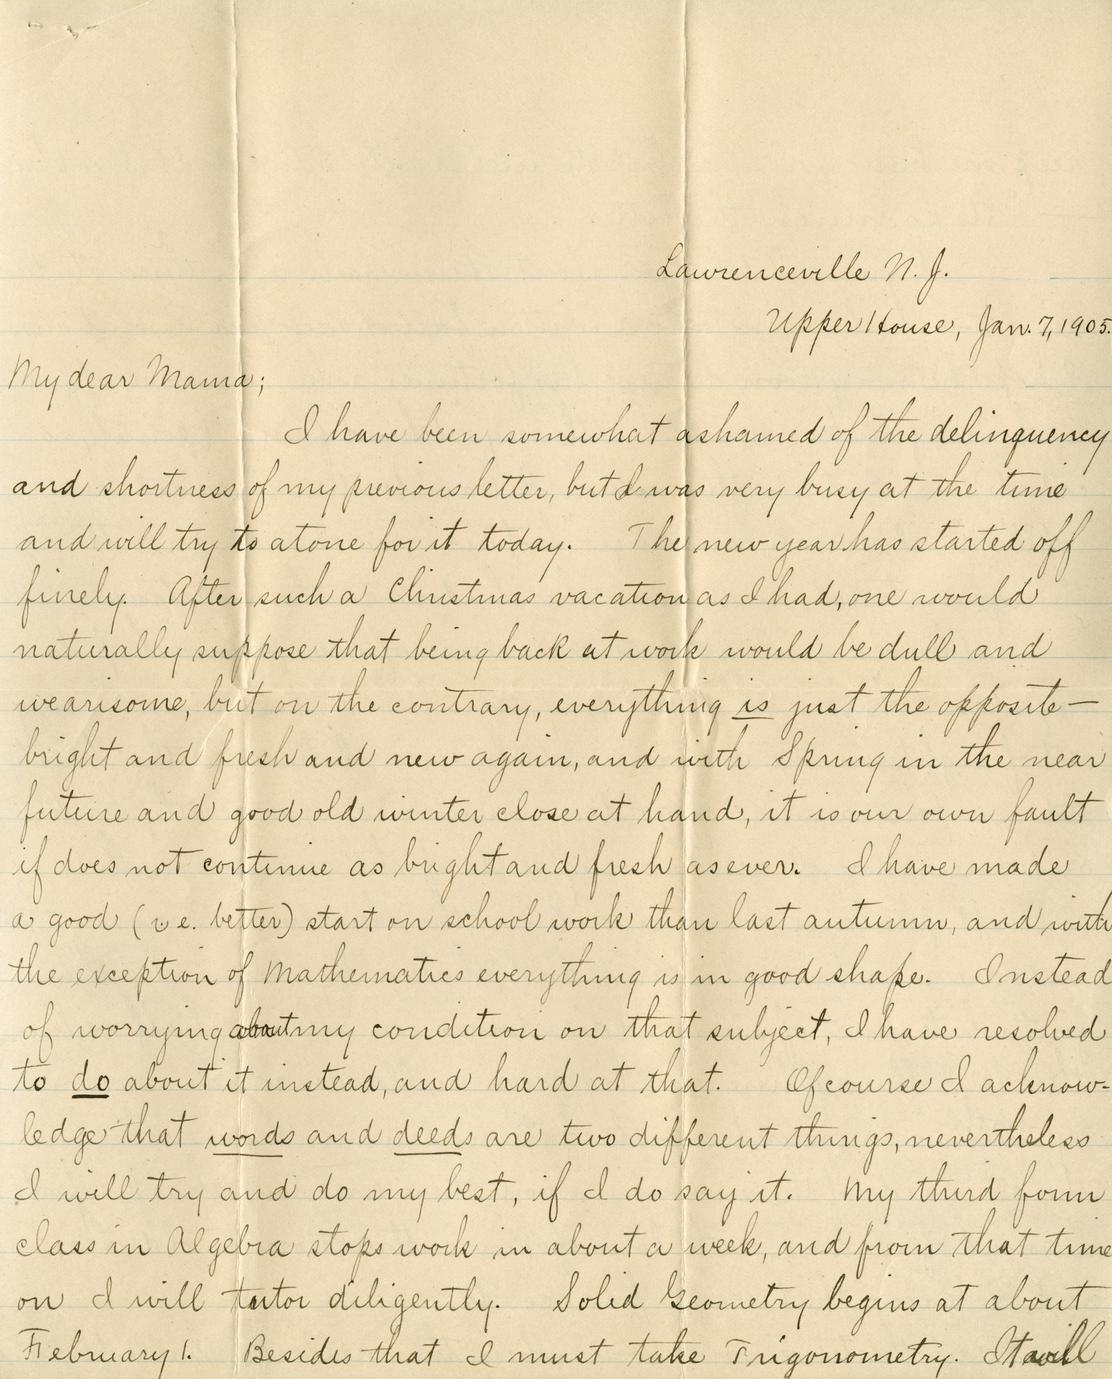 Lawrenceville N. J.
Upper House, Jan. 7, 1905.
My dear Mama;
I have been somewhat ashamed of the delinquency
and shortness of my previous letter, but I was very busy at the time
and will try to atone for it today. The new year has started off
finely. After such a Christmas vacation as I had, one would
naturally suppose that being back at work would be dull and
wearisome, but on the contrary, everything is just the opposite —
bright and fresh and new again, and with Spring in the near
future and good old winter close at hand, it is our own fault
if does not continue as bright and fresh as ever. I have made
a good (i e. better) start on school work than last autumn, and with
the exception of Mathematics everything is in good shape. Instead
of worrying about my condition on that subject, I have resolved
to do about it instead, and hard at that. Of course I acknow-
ledge that words and deeds are two different things, nevertheless
I will try and do my best, if I do say it. My third form
class in Algebra stops work in about a week, and from that time
on I will tutor diligently. Solid Geometry begins at about
February 1. Besides that I must take Trigonometry. It will